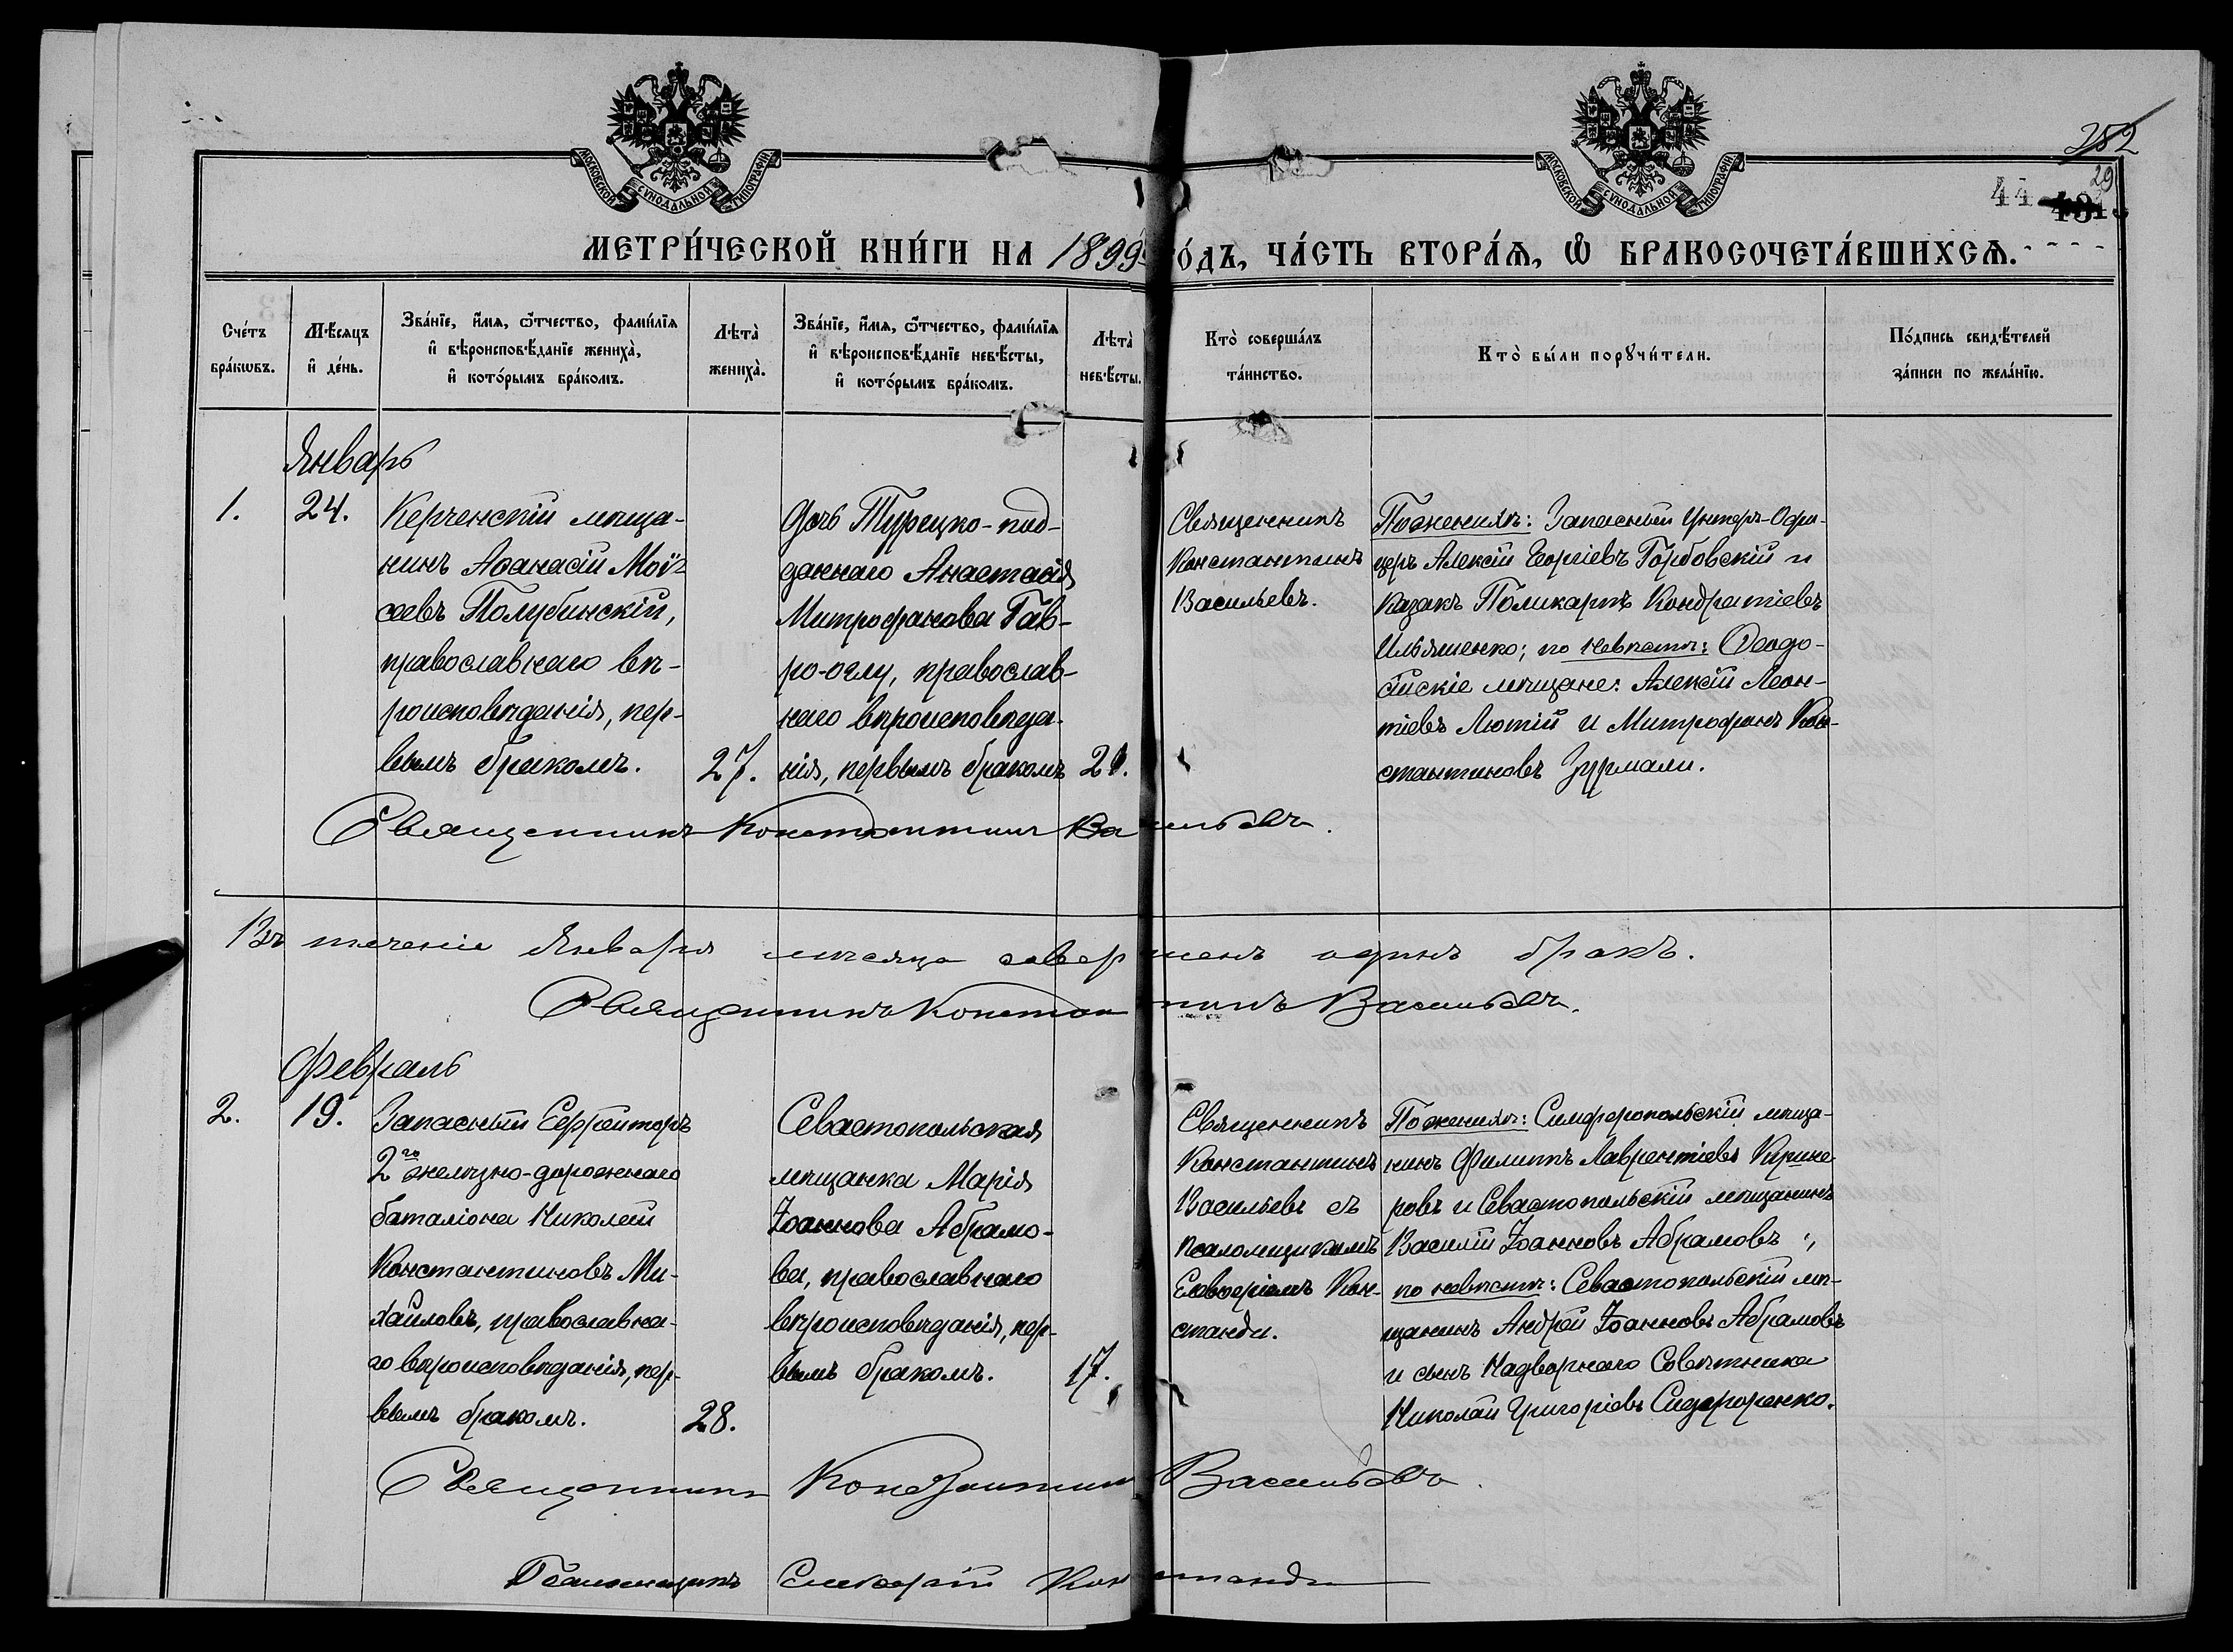 МОСКОВСКОЙ СѴНОДАЛЬНОЙ ТИПОГРАФІИ
МОСКОВСКОЙ СѴНОДАЛЬНОЙ ТИПОГРАФІИ
282
29
44
МЕТРИ́ЧЕСКОЙ КНИ́ГИ НА 1899 ГО́ДЪ, ЧА́СТЬ ВТОРА́Ѧ, Ѡ҆ БРАКОСОЧЕТА́ВШИХСѦ.
Сче́тъ бра́кѡвъ.
Мѣ́сяцъ и҆ де́нь.
Зва́нїе, и҆́мѧ, ѻ҆́тчество, фамѝлїѧ
и҆ вѣроисповѣ́данїе жениха̀,
и҆ кото́рымъ бра́комъ.
Лѣта̀ жениха̀.
Зва́нїе, и҆́мѧ, ѻ҆́тчество, фамѝлїѧ
и҆ вѣроисповѣ́данїе невѣ́сты,
и҆ кото́рымъ бра́комъ.
Лѣта̀ невѣ́сты.
Кто̀ соверша́лъ
та́инство.
Кто̀ бы́ли порꙋчи́тели.
По́дпись свидѣ́телей
за́писи по жела́нїю.
Январь
1.
24.
Керченскій мѣща-
нинъ Аѳанасій Мои-
сеевъ Полубинскій,
православнаго вѣ-
роисповѣданія, пер-
вымъ бракомъ.
27.
Дочь Турецко-под-
даннаго Анастасія
Митрофанова Гав-
ро-оглу, православ-
наго вѣроисповѣда-
нія, первымъ бракомъ
21.
Священникъ
Константинъ
Васильевъ.
По женихѣ: Запасный Унтеръ-Офи-
церъ Алексій Георгіевъ Горбовскій и
казакъ Поликарпъ Кондратіевъ
Ильяшенко; по невѣстѣ: Ѳеодо-
сійскіе мѣщане: Алексій Леон-
тіевъ Лютій и Митрофанъ Кон-
стантиновъ Зурмали.
Священникъ Константинъ Васильевъ.
Въ теченіе Января мѣсяца совершенъ одинъ бракъ.
Священникъ Константинъ Васильевъ.
Февраль
2.
19.
Запасный Ефрейторъ
2го желѣзно-дорожнаго
баталіона Николай
Константиновъ Ми-
хайловъ, православна-
го вѣроисповѣданія, пер-
вымъ бракомъ.
28.
Севастопольская
мѣщанка Марія
Іоаннова Абрамо-
ва, православнаго
вѣроисповѣданія, пер-
вымъ бракомъ.
17.
Священникъ
Константинъ
Васильевъ съ
псаломщикомъ
Елевѳеріемъ Кон-
станди.
По женихѣ: Симферопольскій мѣща-
нинъ Филиппъ Лаврентіевъ Кирине
ровъ и Севастопольскій мѣщанинъ
Василій Іоанновъ Абрамовъ;
по невѣстѣ: Севастопольскій мѣ-
щанинъ Андрей Іоанновъ Абрамовъ
и сынъ Надворнаго Совѣтника
Николай Григоріевъ Сидоренко.
Священникъ Константинъ Васильевъ.
Псаломщикъ Елевѳерій Констанди